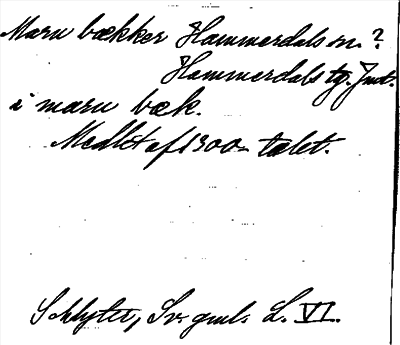 Maru bækker Hammerdals sn. ?
Hammerdals tg. Jmt.
i maru bæk.
Midlet af 1300-talet.
Schlyter, Sv. gml. L. VI.